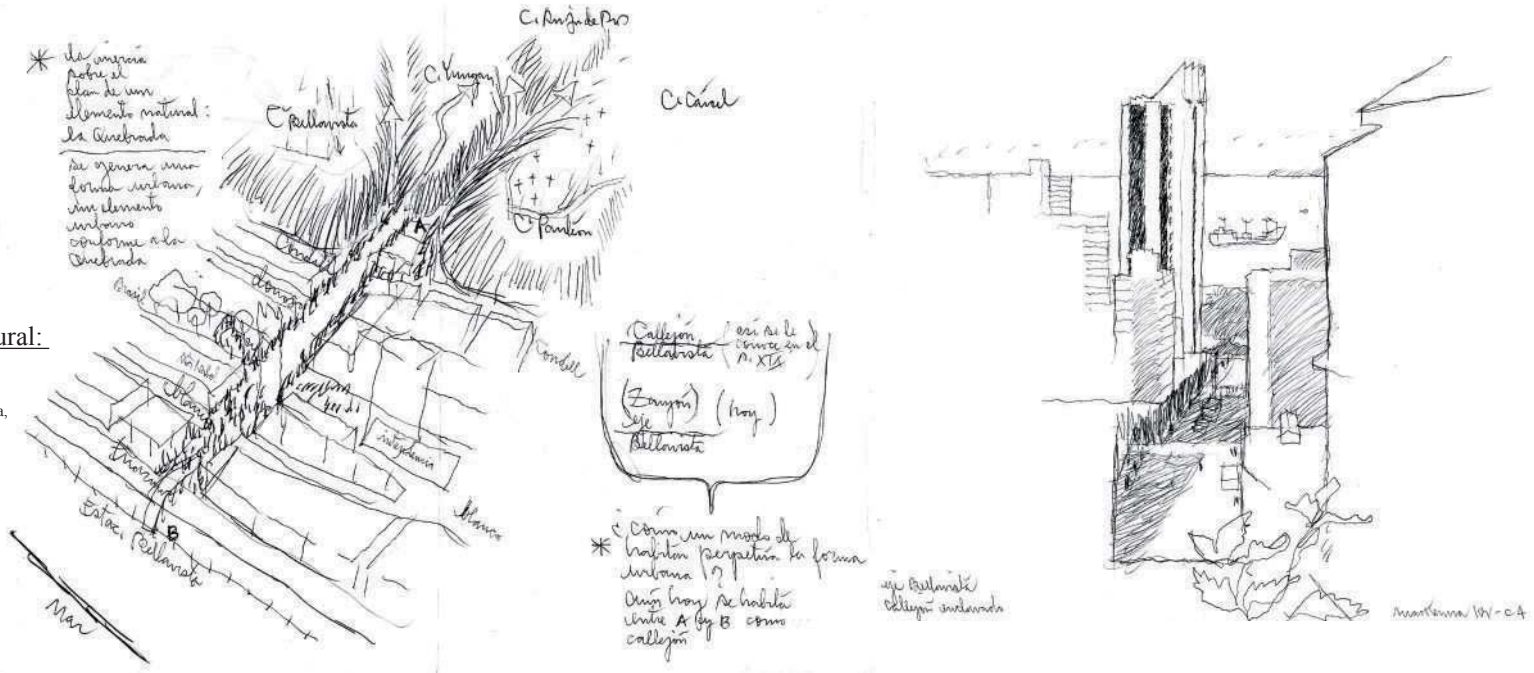 * la inercia
sobre el
plan de un
elemento natural:
la Quebrada
se genera una
forma urbana,
un elemento
urbano
conforme a la
Quebrada
ural:
a,
C. Bellavista
C. Yungay
C. Cárcel
C. Panteón
A
Condell
Brasil
Condell
Blanco
intendencia
Blanco
Estac. Bellavista
B
Mar
Callejón
Bellavista
(así se le
conoce en el
s. XIX)
(Zanjón)
eje
Bellavista
(hoy)
* ¿Cómo un modo de
habitar perpetúa la forma
urbana?
Aún hoy se habita
entre A y B como
callejón
eje Bellavista
callejón enclavado